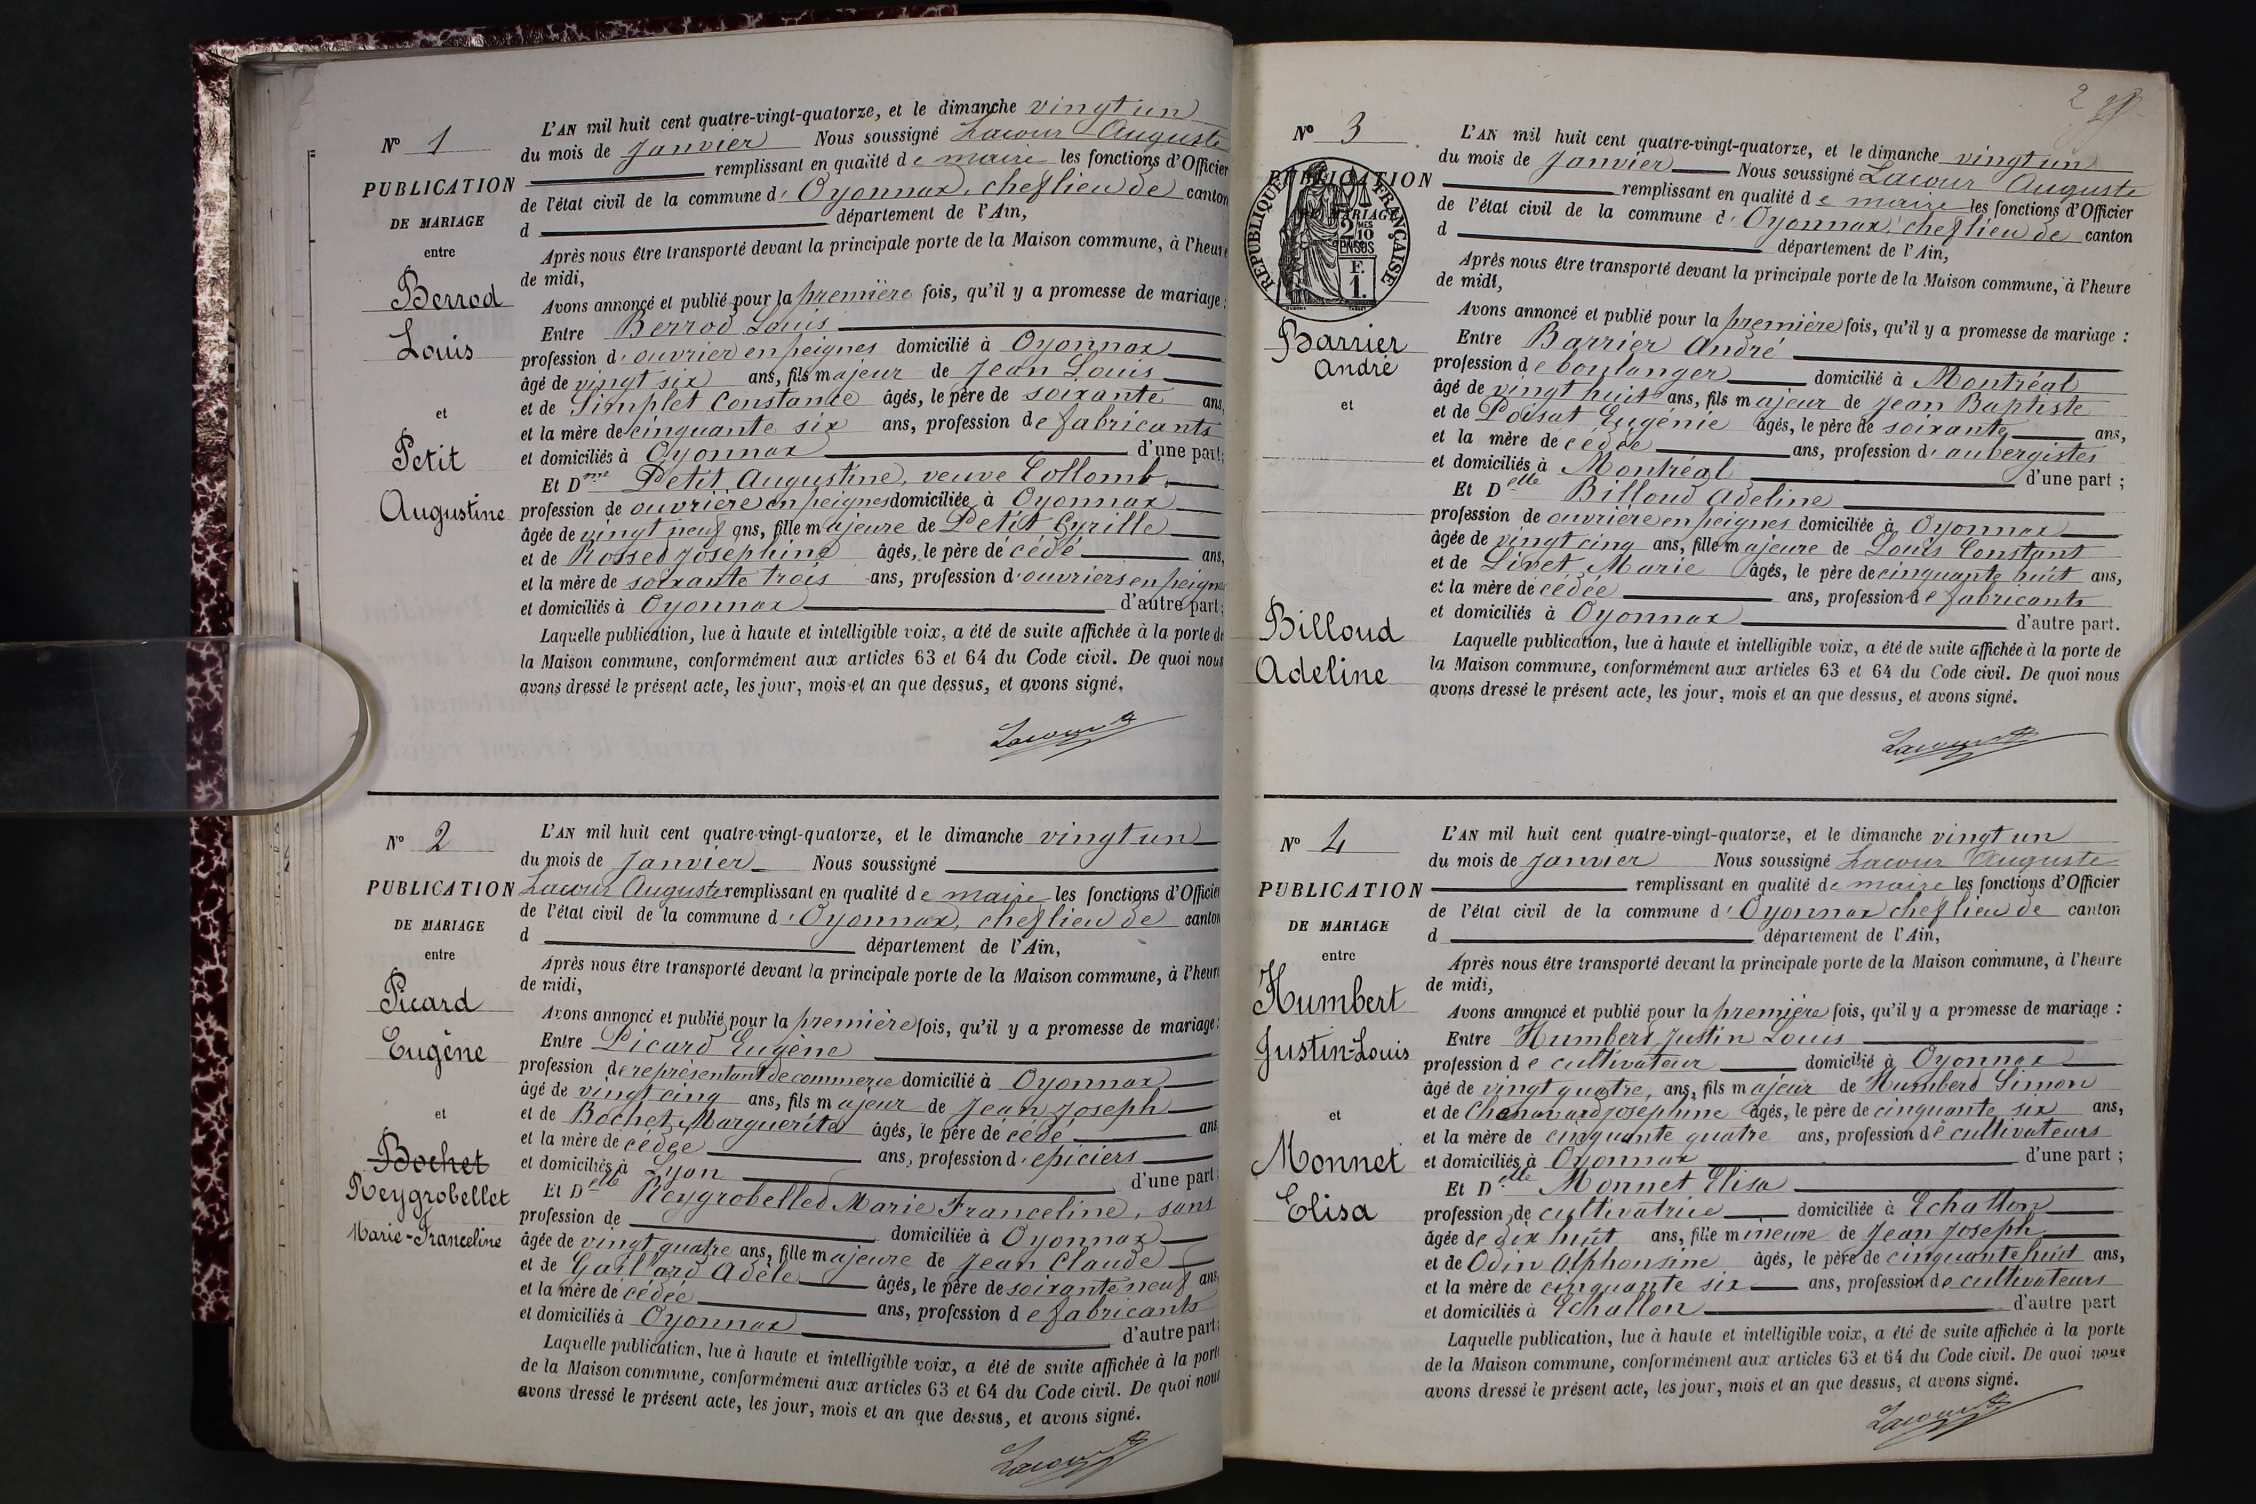 N° 1
PUBLICATION
DE MARIAGE
entre
Berrod
Louis
et
Petit
Augustine
L'AN mil huit cent quatre-vingt-quatorze, et le dimanche vingt un
du mois de Janvier Nous soussigné Lacour Auguste
remplissant en qualité de maire les fonctions d'Officier
de l'état civil de la commune d'Oyonnax, chef lieu de canton
d département de l'Ain,
Après nous être transporté devant la principale porte de la Maison commune, à l'heure
de midi,
Avons annoncé et publié pour la première fois, qu'il y a promesse de mariage :
Entre Berrod Louis
profession d'ouvrier en peignes domicilié à Oyonnax
âgé de vingt six ans, fils majeur de Jean Louis
et de Simplet Constance âgés, le père de soixante ans,
et la mère de cinquante six ans, profession de fabricants
et domiciliés à Oyonnax d'une part;
Et Dme Petit Augustine, veuve Collomb,
profession de ouvrière en peignes domiciliée à Oyonnax
âgée de vingt neuf ans, fille majeure de Petit Cyrille
et de Rosset Joséphine âgés, le père décédé ans,
et la mère de soixante trois ans, profession d'ouvriers en peignes
et domiciliés à Oyonnax d'autre part;
Laquelle publication, lue à haute et intelligible voix, a été de suite affichée à la porte de
la Maison commune, conformément aux articles 63 et 64 du Code civil. De quoi nous
avons dressé le présent acte, les jour, mois et an que dessus, et avons signé.
Lacour
N° 2
PUBLICATION
DE MARIAGE
entre
Picard
Eugène
et
Bochet
Reygrobellet
Marie-Franceline
L'AN mil huit cent quatre-vingt-quatorze, et le dimanche vingt un
du mois de Janvier Nous soussigné
Lacour Auguste remplissant en qualité de maire les fonctions d'Officier
de l'état civil de la commune d'Oyonnax, chef lieu de canton
d département de l'Ain,
Après nous être transporté devant la principale porte de la Maison commune, à l'heure
de midi,
Avons annoncé et publié pour la première fois, qu'il y a promesse de mariage :
Entre Picard Eugène
profession de représentant de commerce domicilié à Oyonnax
âgé de vingt cinq ans, fils majeur de Jean Joseph
et de Bochet Marguerite âgés, le père décédé ans
et la mère décédée ans, profession d'epiciers
et domiciliés à Lyon d'une part;
Et Delle Reygrobellet Marie Franceline, sans
profession de domiciliée à Oyonnax
âgée de vingt quatre ans, fille majeure de Jean Claude
et de Gaillard Adèle âgés, le père de soixante neuf ans
et la mère décédée ans, profession de fabricants
et domiciliés à Oyonnax d'autre part;
Laquelle publication, lue à haute et intelligible voix, a été de suite affichée à la porte
de la Maison commune, conformément aux articles 63 et 64 du Code civil. De quoi nous
avons dressé le présent acte, les jour, mois et an que dessus, et avons signé.
Lacour
2
N° 3
PUBLICATION
DE MARIAGE
RÉPUBLIQUE FRANÇAISE
2/10MES
EN SUS
F.
1.
Barrier
André
et
Billoud
Adeline
L'AN mil huit cent quatre-vingt-quatorze, et le dimanche vingt un
du mois de Janvier Nous soussigné Lacour Auguste
remplissant en qualité de maire les fonctions d'Officier
de l'état civil de la commune d'Oyonnax, chef lieu de canton
d département de l'Ain,
Après nous être transporté devant la principale porte de la Maison commune, à l'heure
de midi,
Avons annoncé et publié pour la première fois, qu'il y a promesse de mariage :
Entre Barrier André
profession de boulanger domicilié à Montréal
âgé de vingt huit ans, fils majeur de Jean Baptiste
et de Poisat Eugénie âgés, le père de soixante ans,
et la mère décédée ans, profession d'aubergistes
et domiciliés à Montréal d'une part ;
Et Delle Billoud Adeline
profession de ouvrière en peignes domiciliée à Oyonnax
âgée de vingt cinq ans, fille majeure de Louis Constant
et de Livet Marie âgés, le père de cinquante huit ans,
et la mère décédée ans, profession de fabricants
et domiciliés à Oyonnax d'autre part.
Laquelle publication, lue à haute et intelligible voix, a été de suite affichée à la porte de
la Maison commune, conformément aux articles 63 et 64 du Code civil. De quoi nous
avons dressé le présent acte, les jour, mois et an que dessus, et avons signé.
Lacour
N° 4
PUBLICATION
DE MARIAGE
entre
Humbert
Justin-Louis
et
Monnet
Elisa
L'AN mil huit cent quatre-vingt-quatorze, et le dimanche vingt un
du mois de Janvier Nous soussigné Lacour Auguste
remplissant en qualité de maire les fonctions d'Officier
de l'état civil de la commune d'Oyonnax chef lieu de canton
d département de l'Ain,
Après nous être transporté devant la principale porte de la Maison commune, à l'heure
de midi,
Avons annoncé et publié pour la première fois, qu'il y a promesse de mariage :
Entre Humbert Justin Louis
profession de cultivateur domicilié à Oyonnax
âgé de vingt quatre, ans, fils majeur de Humbert Simon
et de Chanavard Josephine âgés, le père de cinquante six ans,
et la mère de cinquante quatre ans, profession de cultivateurs
et domiciliés à Oyonnax d'une part ;
Et Delle Monnet Elisa
profession de cultivatrice domiciliée à Echallon
âgée de dix huit ans, fille mineure de Jean Joseph
et de Odin Alphonsine âgés, le père de cinquante huit ans,
et la mère de cinquante six ans, profession de cultivateurs
et domiciliés à Echallon d'autre part
Laquelle publication, lue à haute et intelligible voix, a été de suite affichée à la porte
de la Maison commune, conformément aux articles 63 et 64 du Code civil. De quoi nous
avons dressé le présent acte, les jour, mois et an que dessus, et avons signé.
Lacour